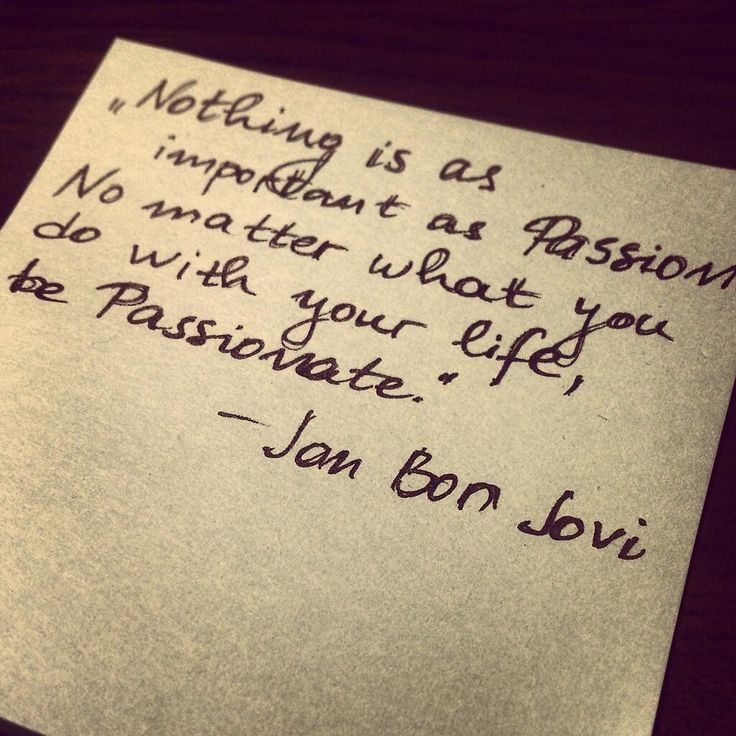 „Nothing is as
important as Passion
No matter what you
do with your life,
be Passionate."
- Jon Bon Jovi